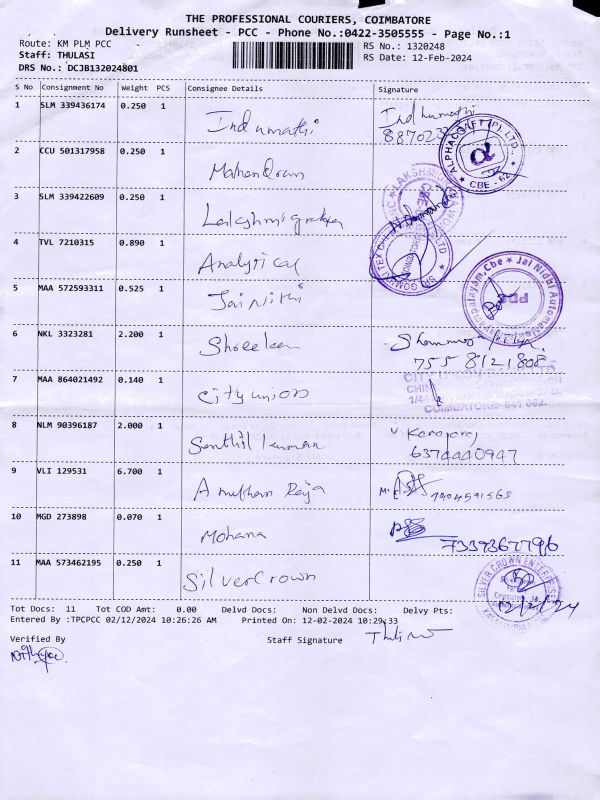 THE PROFESSIONAL COURIERS, COIMBATORE
Delivery Runsheet - PCC - Phone No.:0422-3505555 - Page No.:1
Route: KM PLM PCC
RS No.: 1320248
Staff: THULASI
RS Date: 12-Feb-2024
DRS No.: DCJB132024801
S No Consignment No Weight PCS Consignee Details Signature
1 SLM 339436174 0.250 1
Indumathi Indhumathi
2 CCU 501317958 0.250 1
Mahendran
ALPHACRAFT (P). LTD.
CBE - 62
3 SLM 339422609 0.250 1
4 TVL 7210315 0.890 1
Analytical
5 MAA 572593311 0.525 1
Jai Nidhi
6 NKL 3323281 2.200 1
755 8121808
7 MAA 864021492 0.140 1
city union
COIMBATORE-641 062.
8 NLM 90396187 2.000 1
Senthil kumar
6374440947
9 VLI 129531 6.700 1
10 MGD 273898 0.070 1
Mohana
11 MAA 573462195 0.250 1
SilverCrown
SILVER CROWN ENTERPRISES
12/2/24
Tot Docs: 11 Tot COD Amt: 0.00 Delvd Docs: Non Delvd Docs: Delvy Pts:
Entered By :TPCPCC 02/12/2024 10:26:26 AM Printed On: 12-02-2024 10:29:33
Verified By Staff Signature